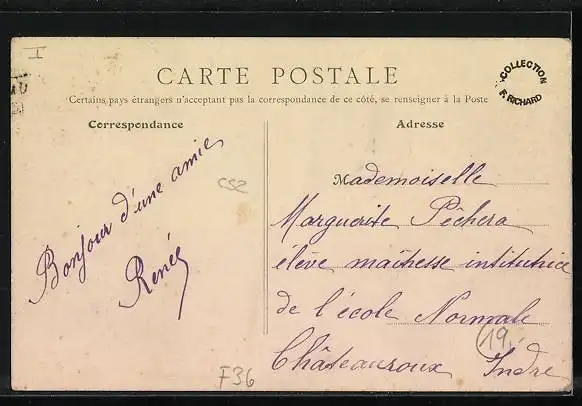 I
CARTE POSTALE
COLLECTION
F. RICHARD
Certains pays étrangers n'acceptant pas la correspondance de ce côté, se renseigner à la Poste
Correspondance
Adresse
Bonjour d'une amie
Renée
CS2
Mademoiselle
Marguerite Pêchera
élève maîtresse institutrice
de l'école Normale
Châteauroux Indre
19.-
F36